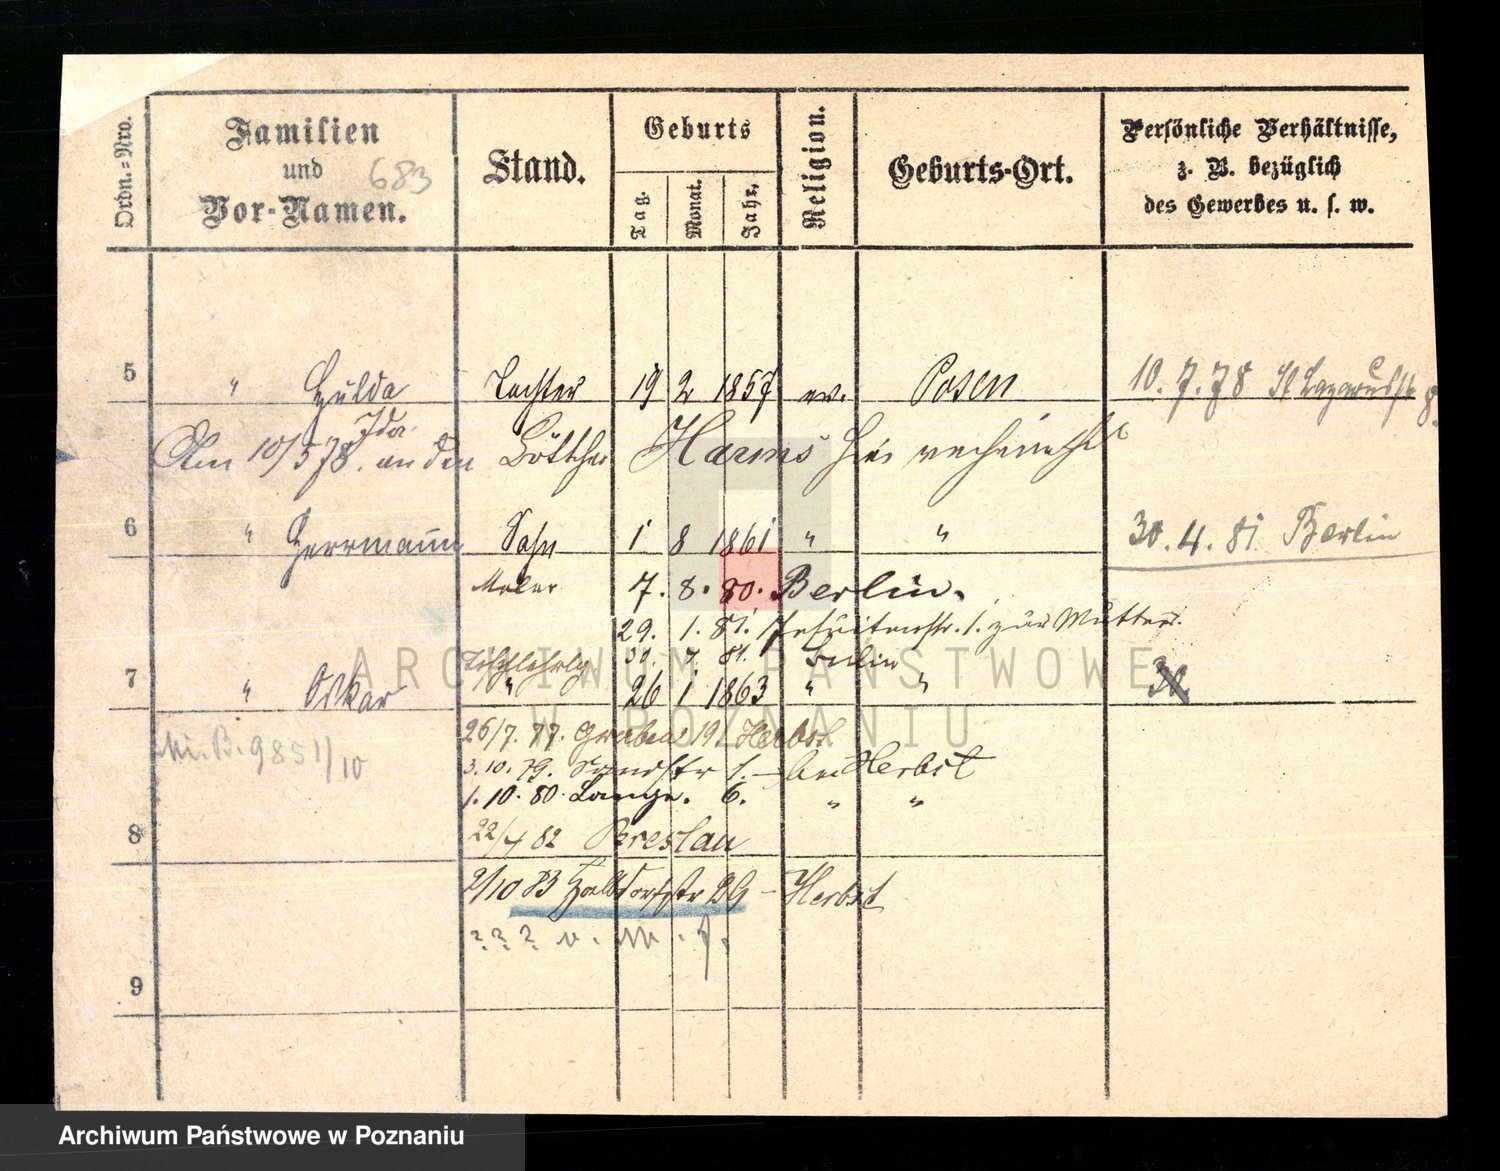 Ordn.-Nro.
Familien
und
Vor-Namen.
683
Stand.
Geburts
Tag.
Monat.
Jahr,
Religion.
Geburts-Ort.
Persönliche Verhältnisse,
z. B. bezüglich
des Gewerbes u. s. w.
5 " Hulda Tochter 19 2 1857 ev. Posen 10.7.78 St Lazarusstr 8.
Ida
Am 10/5 78. an den Böttcher Harms hier verheirathet
6 " Herrmann Sohn 1 8 1861 " " 30.4.81 Berlin
Maler 7. 8. 80. Berlin.
29. 1. 81. Jesuitenstr. 1. zur Mutter.
30. 7. 81. Berlin
7 " Oskar " 26 1 1863 " " 30.
26/7. 77. Graben 19. Herbst
B. 985 1/10
3. 10. 79. Sandstr 1. — bei Herbst
1. 10. 80. Lange. 6. " "
8 22/4 82 Breslau
2/10 83 Halbdorfstr 29 - Herbst
? ? ? v. M. f.
9
ARCHIWUM PAŃSTWOWE
W POZNANIU
Archiwum Państwowe w Poznaniu